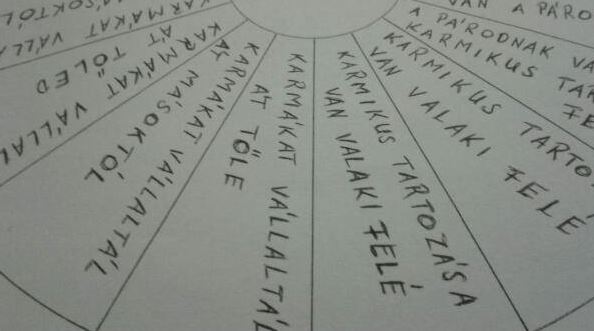 MÁSOKTÓL
KARMÁKAT VÁLLA
ÁT TŐLED
KARMÁKAT VÁLLAL
ÁT MÁSOKTÓL
KARMÁKAT VÁLLALTÁL
ÁT TŐLE
KARMÁKAT VÁLLALTÁL
KARMIKUS TARTOZÁSA
VAN VALAKI FELÉ
KARMIKUS TARTO
VAN VALAKI FELÉ
KARMIKUS TAR
A PÁRODNAK VA
FE
VAN A PÁRO